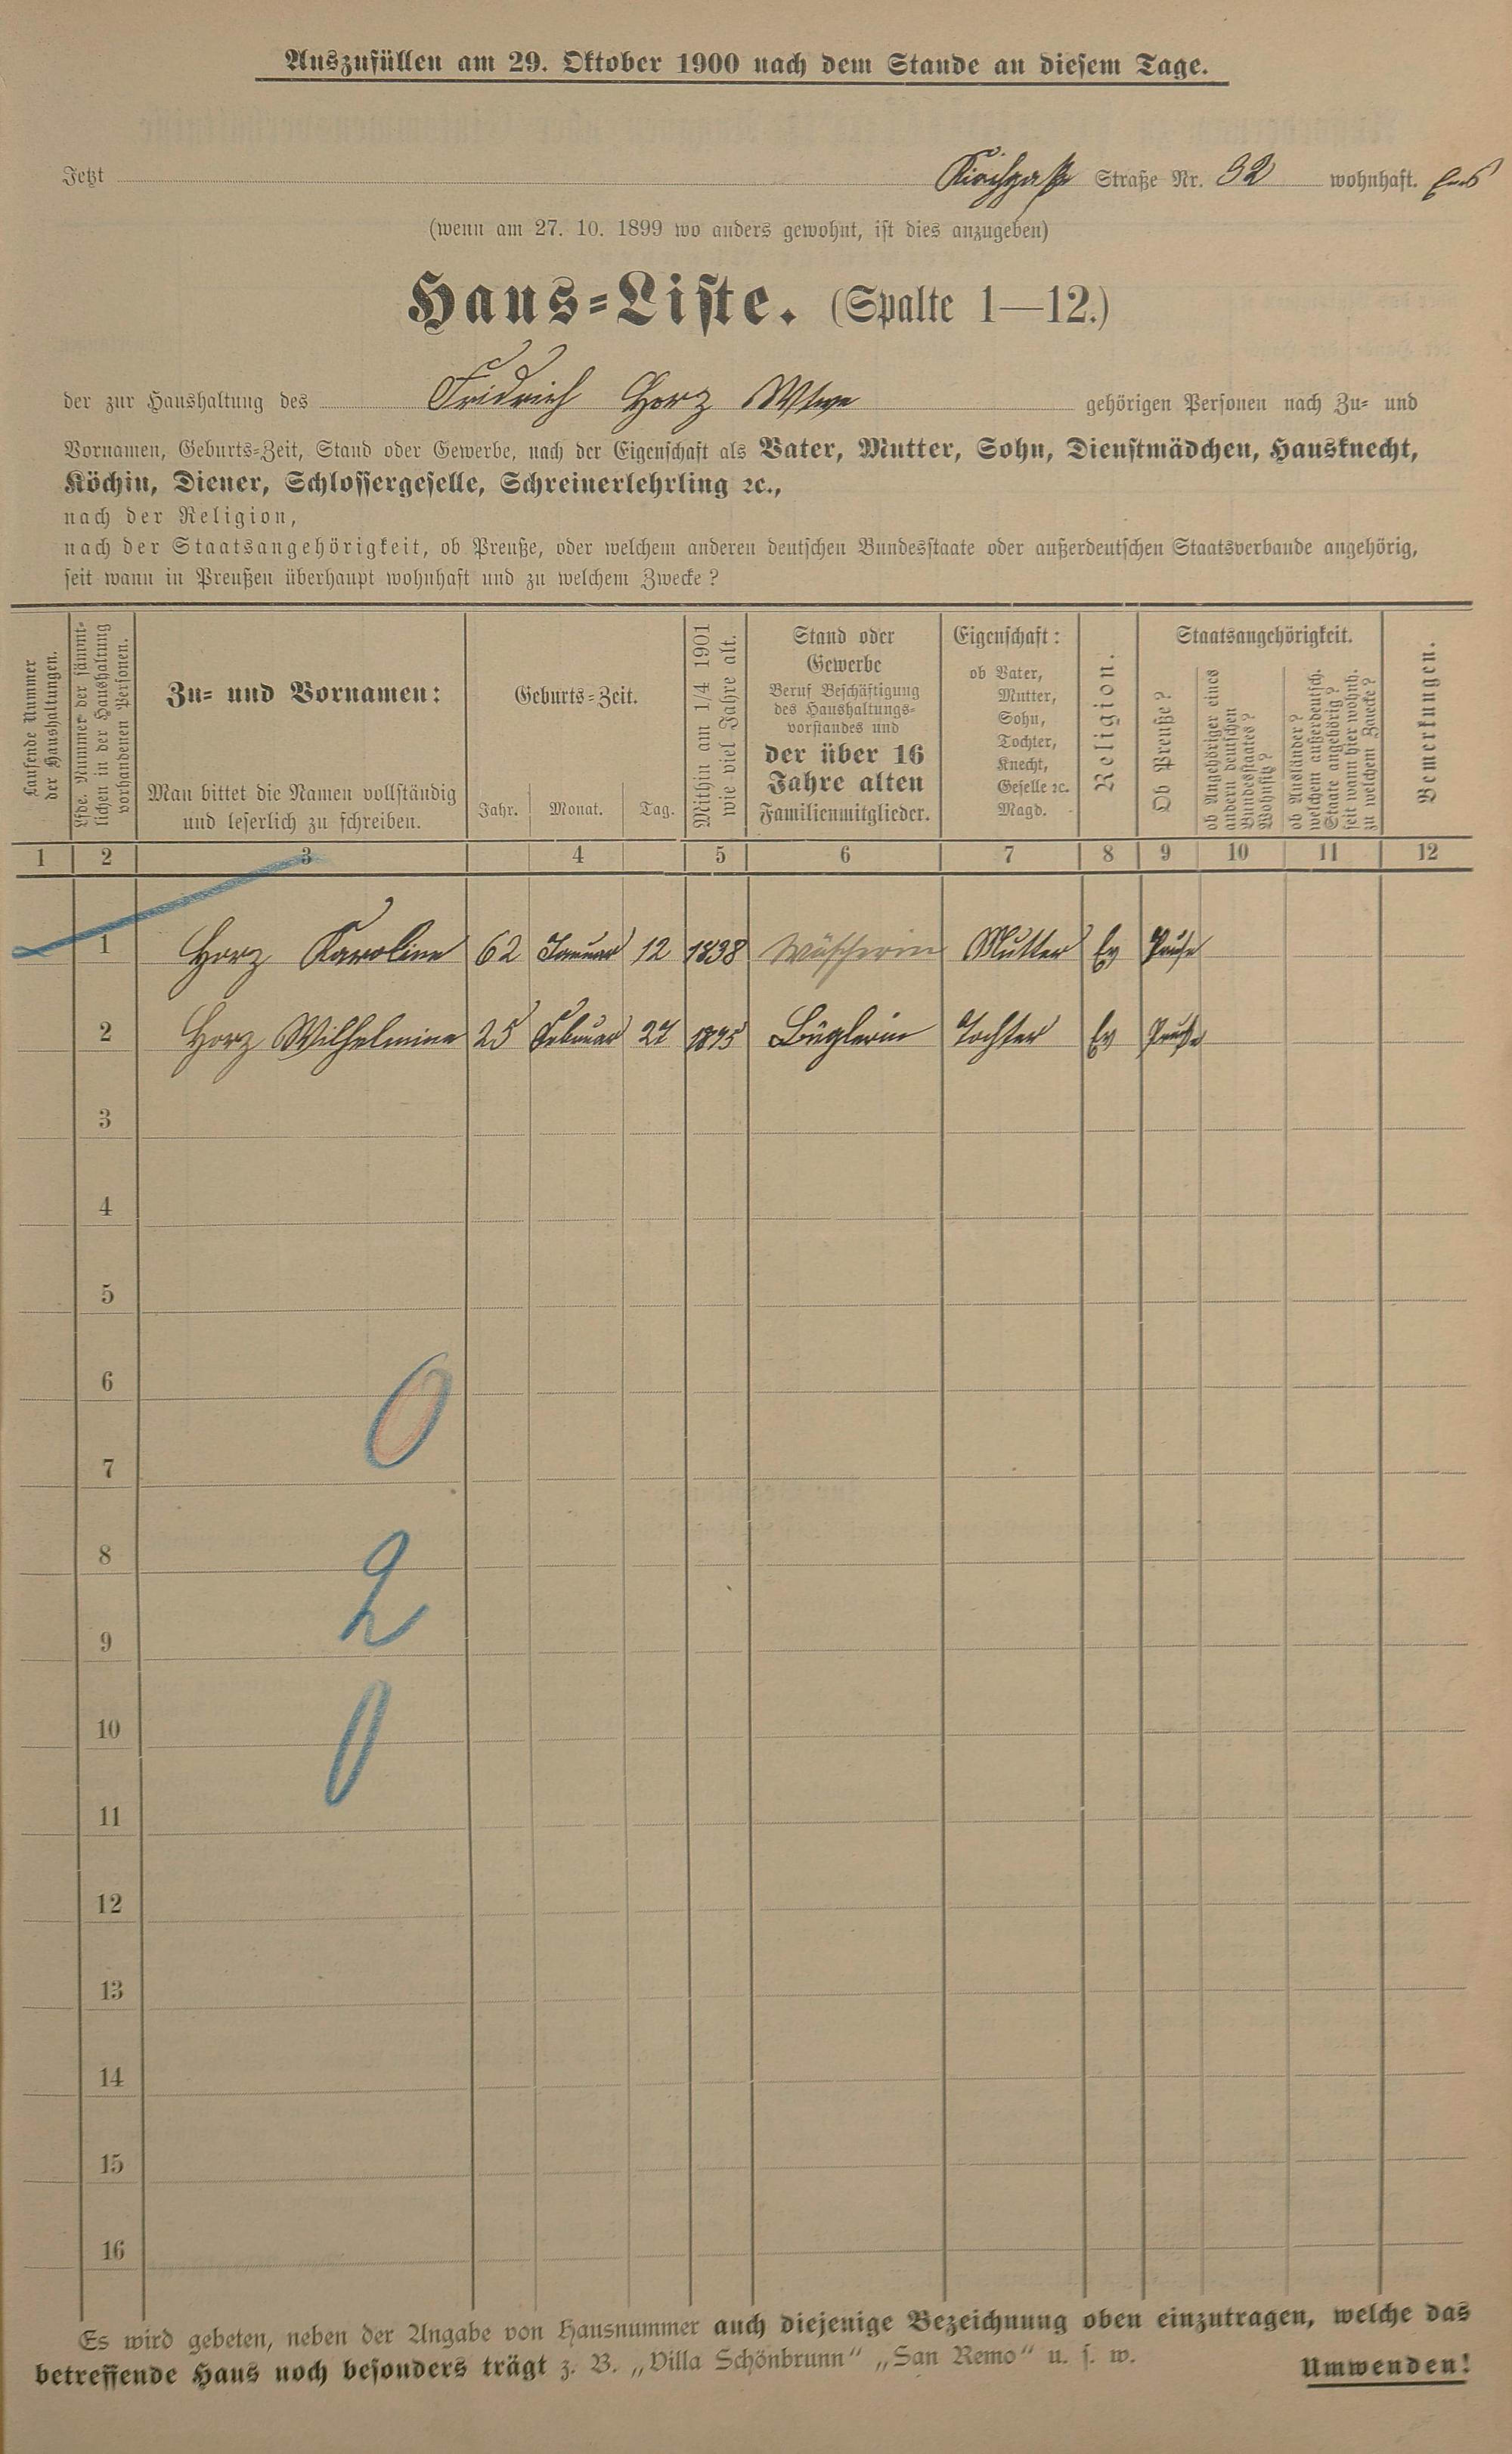 Auszufüllen am 29. Oktober 1900 nach dem Stande an diesem Tage.
Jetzt Kirchgasse Straße Nr. 32 wohnhaft.
(wenn am 27. 10. 1899 wo anders gewohnt, ist dies anzugeben)
Haus-Liste. (Spalte 1—12.)
der zur Haushaltung des Fridrich Horz Wtwe gehörigen Personen nach Zu- und
Vornamen, Geburts-Zeit, Stand oder Gewerbe, nach der Eigenschaft als Vater, Mutter, Sohn, Dienstmädchen, Hausknecht,
Köchin, Diener, Schlossergeselle, Schreinerlehrling ꝛc.,
nach der Religion,
nach der Staatsangehörigkeit, ob Preuße, oder welchem anderen deutschen Bundesstaate oder außerdeutschen Staatsverbande angehörig,
seit wann in Preußen überhaupt wohnhaft und zu welchem Zwecke?
Laufende Nummer
der Haushaltungen.
Lfde. Nummer der sämmt-
lichen in der Haushaltung
vorhandenen Personen.
Zu- und Vornamen:
Man bittet die Namen vollständig
und leserlich zu schreiben.
Geburts-Zeit.
Jahr. Monat. Tag.
Mithin am 1/4 1901
wie viel Jahre alt.
Stand oder
Gewerbe
Beruf Beschäftigung
des Haushaltungs-
vorstandes und
der über 16
Jahre alten
Familienmitglieder.
Eigenschaft:
ob Vater,
Mutter,
Sohn,
Tochter,
Knecht,
Geselle ꝛc.
Magd.
Religion.
Staatsangehörigkeit.
Ob Preuße?
ob Angehöriger eines
andern deutschen
Bundesstaates?
Wohnsitz?
ob Ausländer?
welchem außerdeutsch.
Staate angehörig?
seit wann hier wohnh.
zu welchem Zwecke?
Bemerkungen.
1 2 3 4 5 6 7 8 9 10 11 12
1 Horz Karoline 62 Januar 12 1838 Wäscherin Mutter Ev Preuße
2 Horz Wilhelmine 25 Februar 27 1875 Büglerin Tochter Ev Preuße
3
4
5
6
0
7
8
2
9
10
0
11
12
13
14
15
16
Es wird gebeten, neben der Angabe von Hausnummer auch diejenige Bezeichnung oben einzutragen, welche das
betreffende Haus noch besonders trägt z. B. „Villa Schönbrunn“ „San Remo“ u. s. w.
Umwenden!